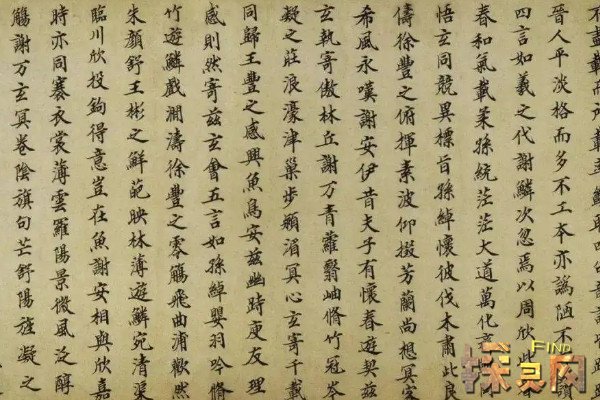 不盡載而所載
晉人平淡格而多不工本亦謭陋不
四言如羲之代謝鱗次忽焉以周欣此
春和氣載柔孫統茫茫大道萬化
悟玄同競異標旨孫綽懷彼伐木肅此良
儔徐豐之俯揮素波仰掇芳蘭尚想冥客
希風永嘆謝安伊昔夫子有懷春遊契茲
玄執寄傲林丘謝万青蘿翳岫脩竹冠岑
凝之莊浪濠津巢步潁湄冥心玄寄千載
同歸王豐之感興魚鳥安茲幽跱庾友理
感則然寄茲玄會五言如孫綽嬰羽吟脩
竹遊鱗戲澗濤徐豐之零觴飛曲浦歡然
朱顏舒王彬之鮮葩映林薄遊鱗宛清渠
臨川欣投鉤得意豈在魚謝安相與欣嘉
時亦同褰衣裳薄雲羅陽景微風泛醇
觴謝万玄冥卷陰旗句芒舒陽旌凝之
FIND
探灵网